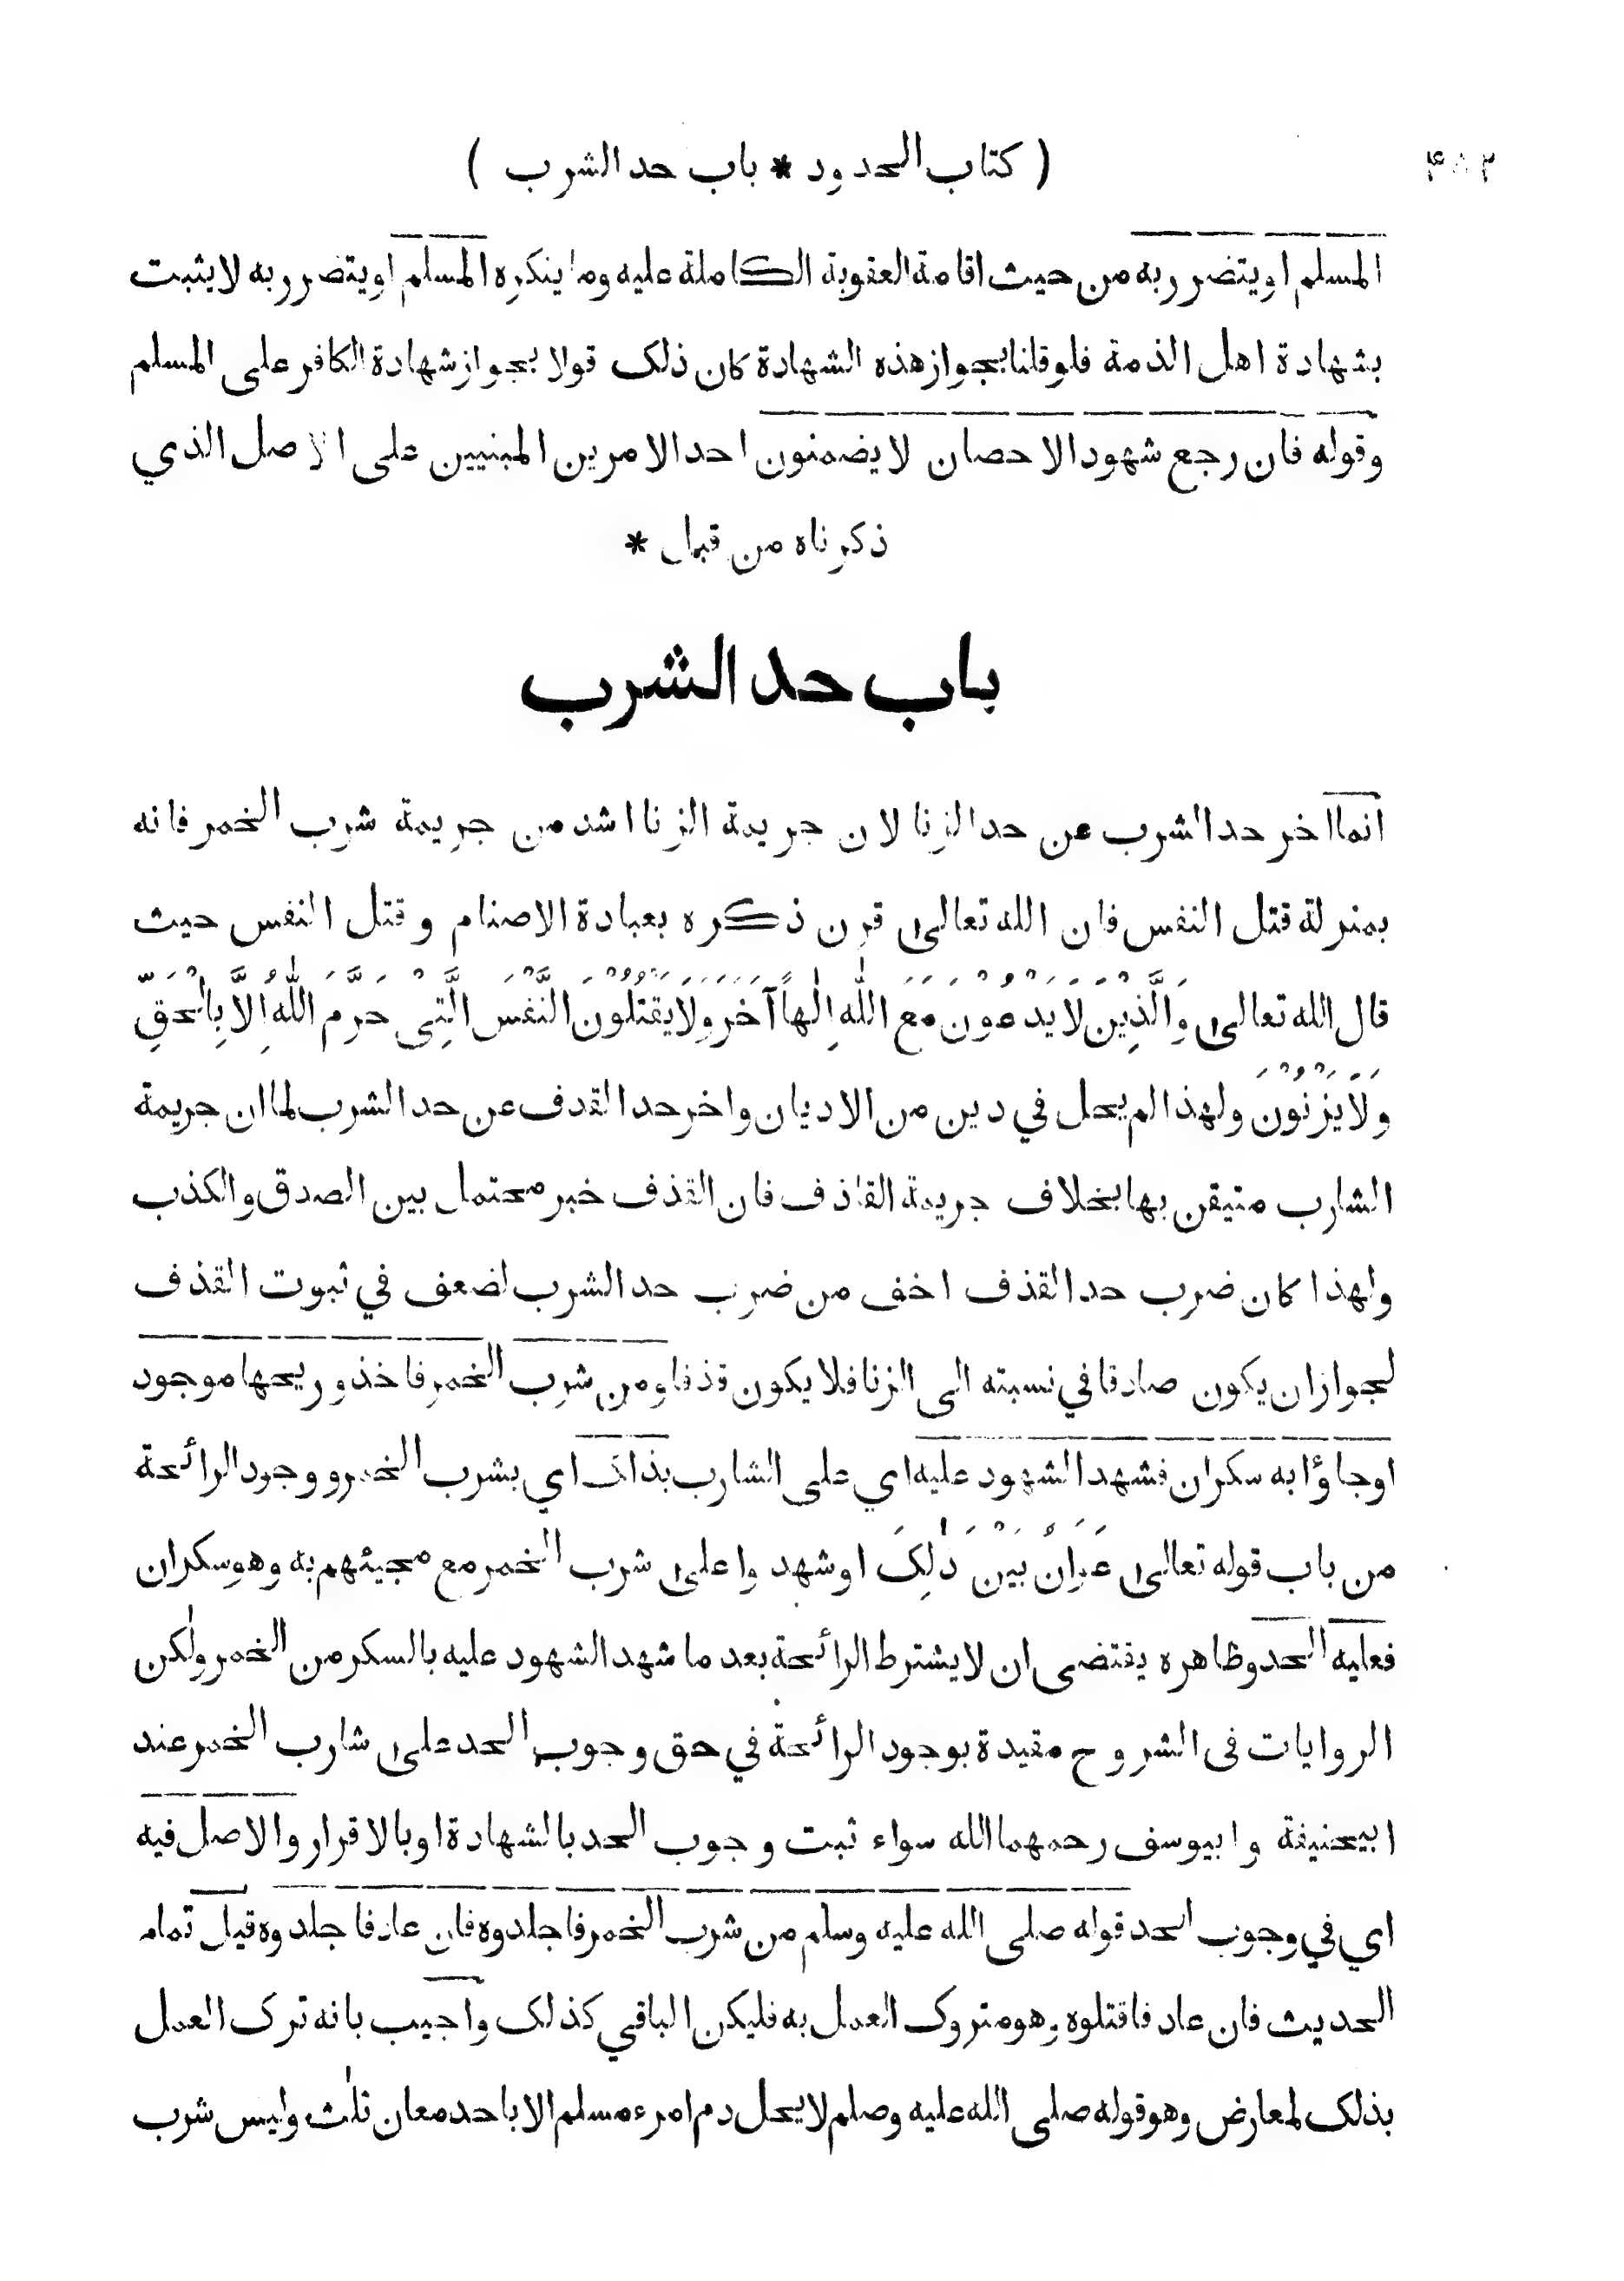 ( كتاب الحدود * باب حد الشرب )
المسلم او يتضرر به من حيث اقامة العقوبة الكاملة عليه وما ينكره المسلم او يتضرر به لا يثبت
بشهادة اهل الذمة فلو قلنا بجواز هذه الشهادة كان ذلك قولا بجواز شهادة الكافر على المسلم
وقوله فان رجع شهود الاحصان لا يضمنون احد الامرين المبنيين على الاصل الذي
ذكرناه من قبل *
باب حد الشرب
انما اخر حد الشرب عن حد الزنا لان جريمة الزنا اشد من جريمة شرب الخمر فانه
بمنزلة قتل النفس فان الله تعالى قرن ذكره بعبادة الاصنام وقتل النفس حيث
قال الله تعالى وَالَّذِيْنَ لَا يَدْعُوْنَ مَعَ اللّٰهِ اِلٰهاً آخَرَ وَلَا يَقْتُلُوْنَ النَّفْسَ الَّتِىْ حَرَّمَ اللّٰهُ اِلَّا بِالْحَقِّ
وَلَا يَزْنُوْنَ ولهذا لم يحل في دين من الاديان واخر حد القدف عن حد الشرب لما ان جريمة
الشارب متيقن بها بخلاف جريمة القاذف فان القذف خبر محتمل بين الصدق والكذب
ولهذا كان ضرب حد القذف اخف من ضرب حد الشرب لضعف في ثبوت القذف
لجواز ان يكون صادقا في نسبته الى الزنا فلا يكون قذفا ومن شرب الخمر فاخذ وريحها موجود
او جاؤا به سكران فشهد الشهود عليه اي على الشارب بذلك اي بشرب الخمر ووجود الرائحة
من باب قوله تعالى عَوَانٌ بَيْنَ ذٰلِكَ او شهد وا على شرب الخمر مع مجيئهم به وهو سكران
فعليه الحد وظاهره يقتضى ان لا يشترط الرائحة بعد ما شهد الشهود عليه بالسكر من الخمر ولٰكن
الروايات فى الشروح مقيدة بوجود الرائحة في حق وجوب الحد على شارب الخمر عند
ابيحنيفة وابيوسف رحمهما الله سواء ثبت وجوب الحد بالشهادة او بالاقرار والاصل فيه
اي في وجوب الحد قوله صلى الله عليه وسلم من شرب الخمر فاجلدوه فان عاد فاجلدوه قيل تمام
الحديث فان عاد فاقتلوه وهو متروك العمل به فليكن الباقي كذلك واجيب بانه ترك العمل
بذلك لمعارض وهو قوله صلى الله عليه وصلم لا يحل دم امرء مسلم الا باحد معان ثلٰث وليس شرب